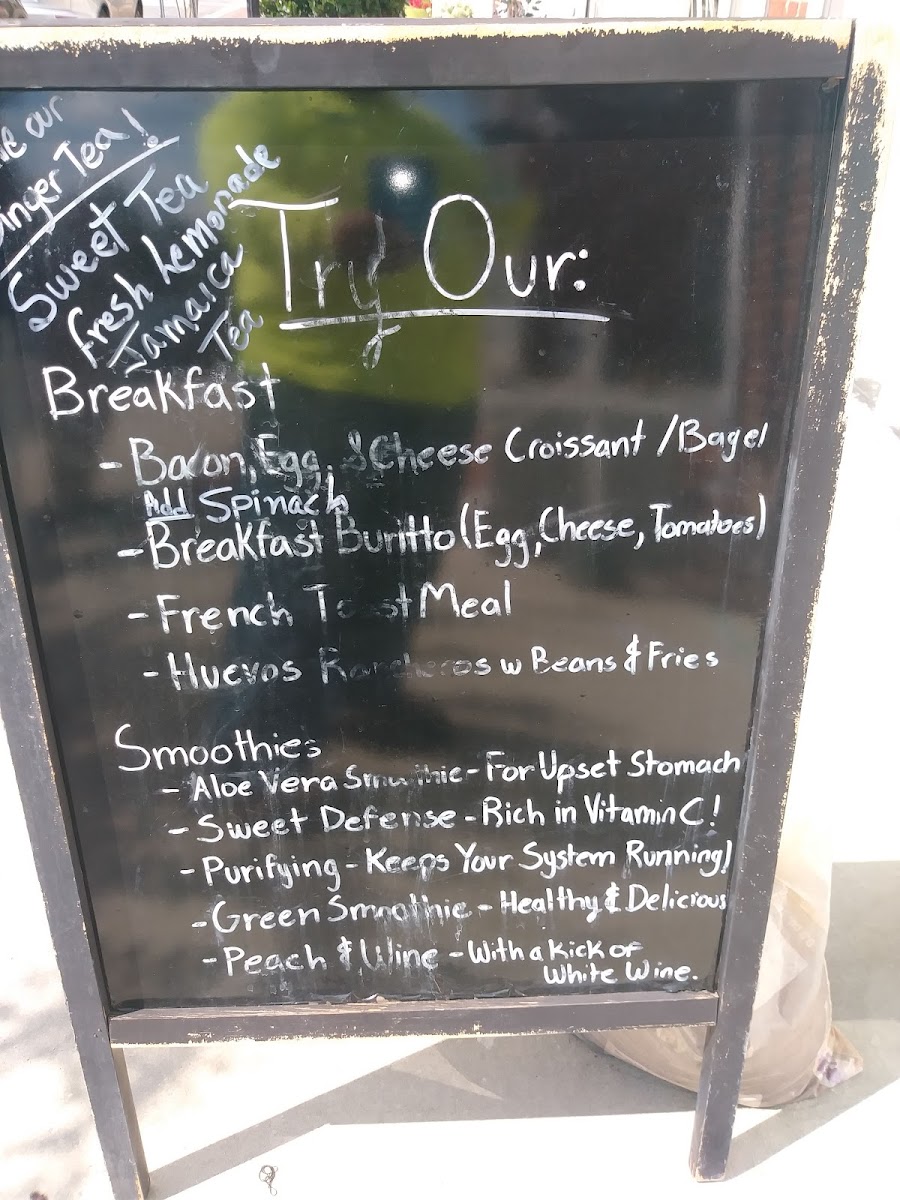 our
Ginger Tea!
Sweet Tea
fresh Lemonade
Jamaica
Tea
Try Our:
Breakfast
- Bacon, Egg, & Cheese Croissant / Bagel
Add Spinach
- Breakfast Buritto (Egg, Cheese, Tomatoes)
- French Toast Meal
- Huevos Rancheros w Beans & Fries
Smoothies
- Aloe Vera Smoothie - For Upset Stomach
- Sweet Defense - Rich in Vitamin C!
- Purifying - Keeps Your System Running!
- Green Smoothie - Healthy & Delicious
- Peach & Wine - With a Kick of
White Wine.